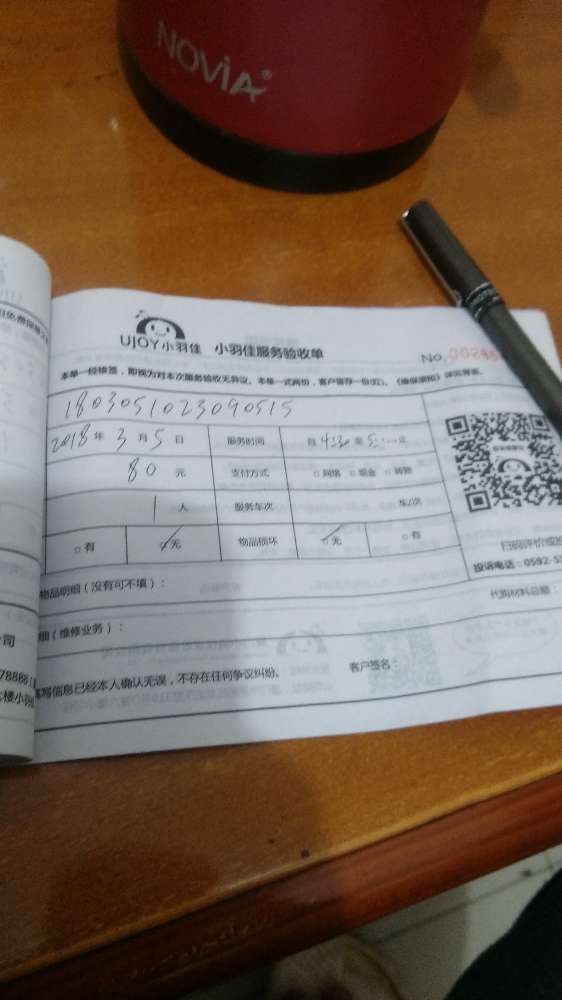 NOVIA®
UJOY小羽佳 小羽佳服务验收单
No.
本单一经接签，即视为对本次服务验收无异议。本单一式两份，客户留存一份(红)。
1803051023090515
2018年3月5日 服务时间 自4:30至5: 止
80元 支付方式 □网络 □现金 □转账
1人 服务车次 车/次
□有 □无 物品损坏 □无 □有
扫码评价或投
投诉电话：0592-55
物品明细（没有可不填）：
代购材料总额：
细（维修业务）：
写信息已经本人确认无误，不存在任何争议纠纷。 客户签名：
公司
78888
楼小羽